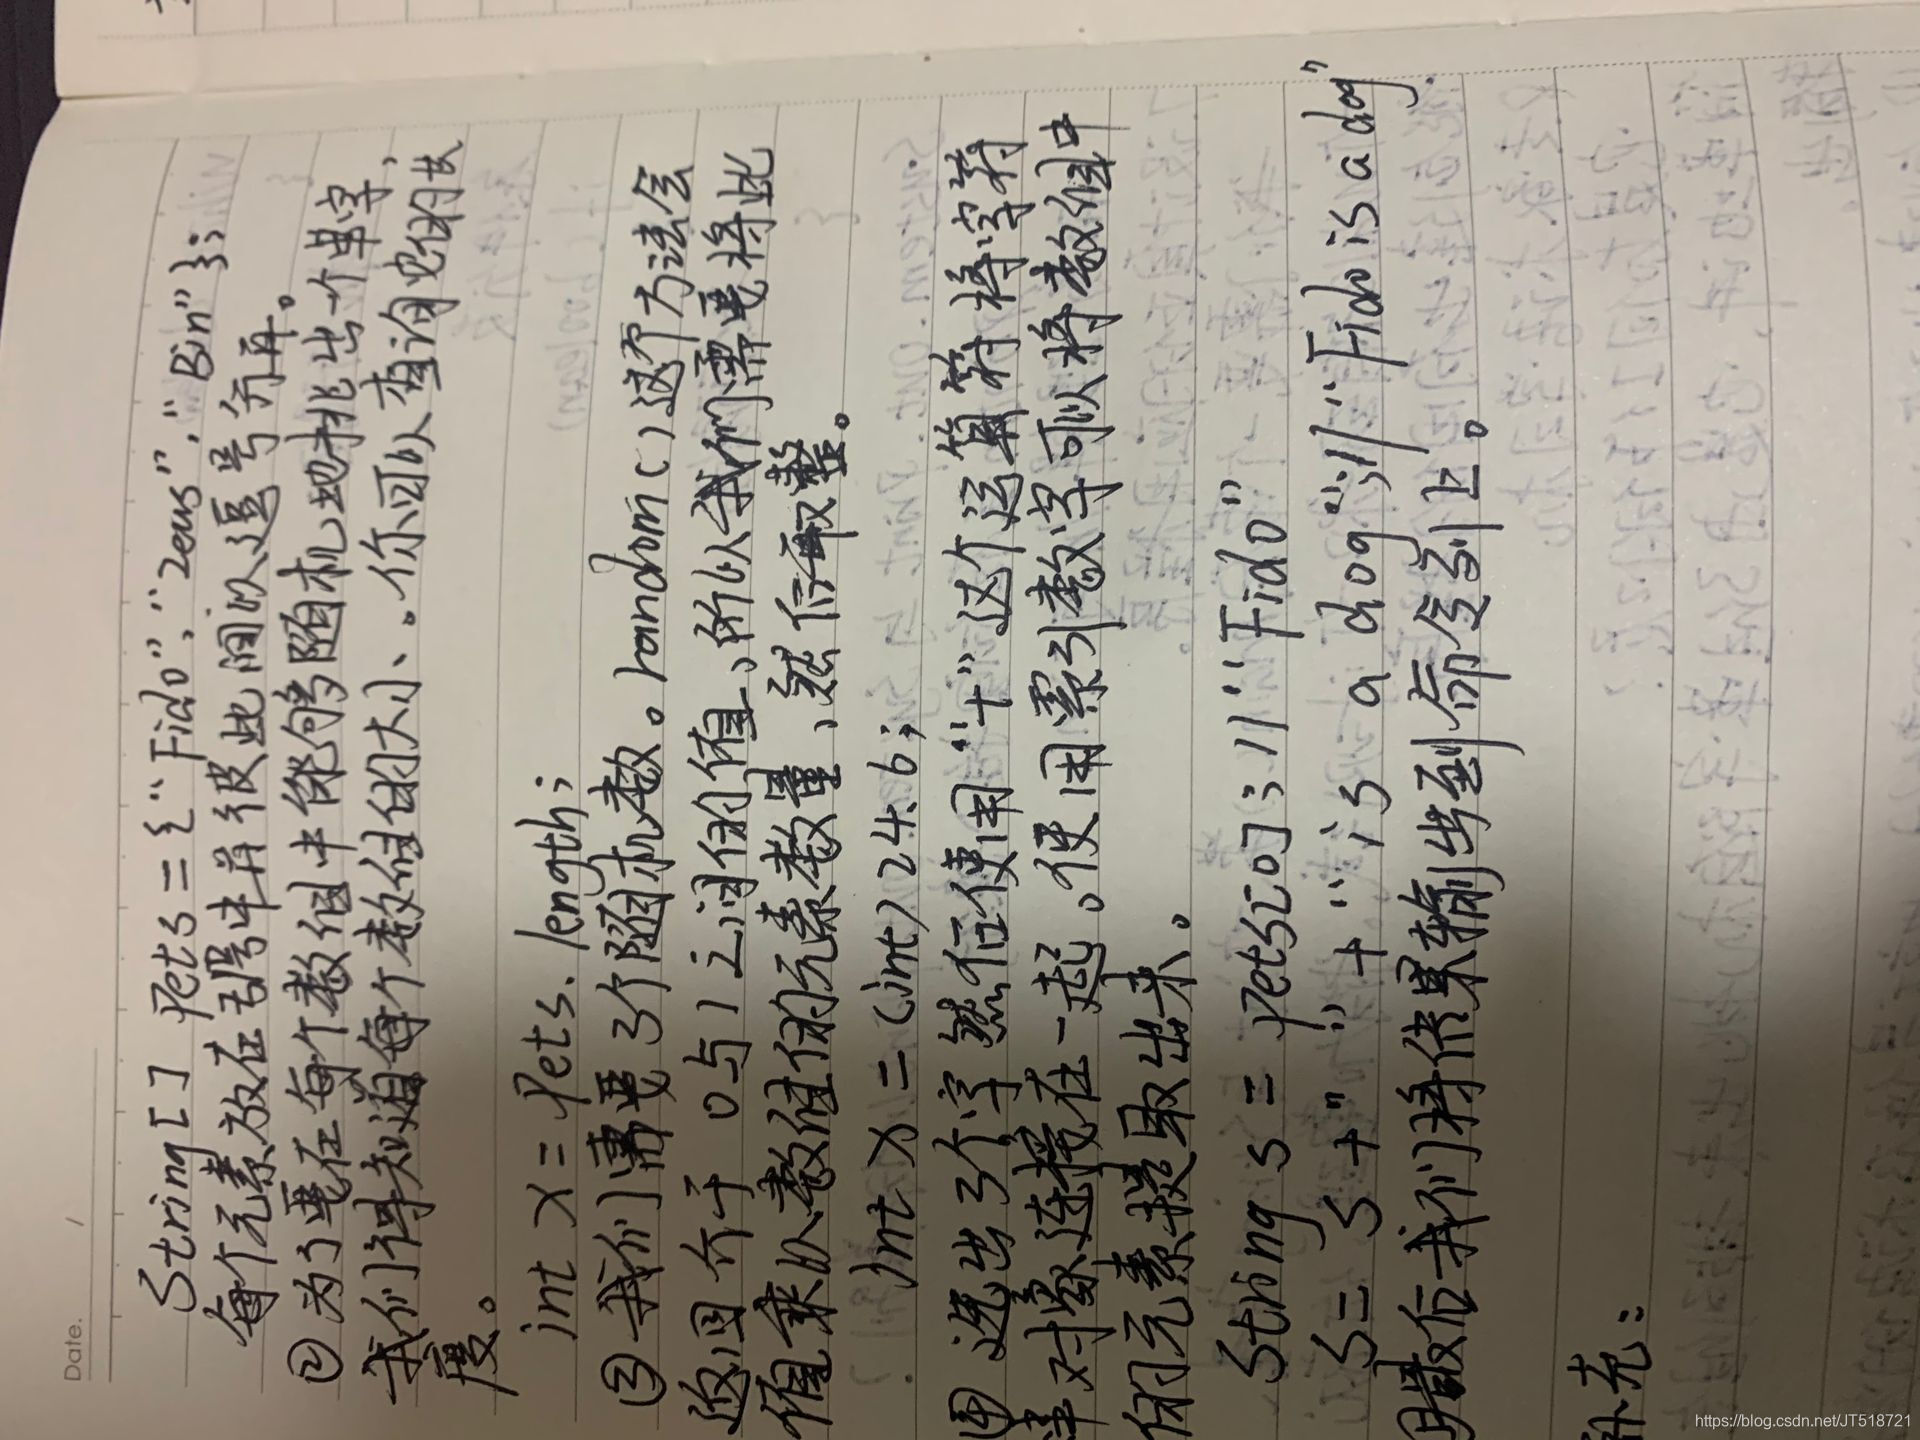 Date. /
String[] Pets = {"Fido", "Zeus", "Bin"};
每个元素放在括号中并彼此间以逗号分开。
② 为了要在每个数组中能够随机地挑出一个单字,
我们得知道每个数组的大小、。你可以查询数组的长
度。
int x = Pets.length;
③ 我们需要3个随机数。random()这个方法会
返回介于 0与1之间的值、所以我们需要将此
值乘以数组的元素数量、然后取整。
int x = (int) 24.6;
④ 选出3个字然后使用"+"这个运算符将字符
串对象连接在一起。使用索引数字可以将数组中
的元素提取出来。
String s = Pets[0]; // "Fido"
s = s + " " + "is a dog"; // "Fido is a dog"
最后我们将结果输出到命令列上。
补充:
https://blog.csdn.net/JT518721